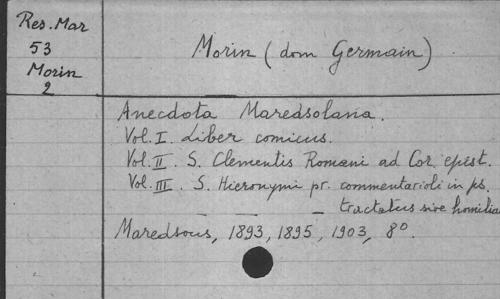 Res. Mar
53
Morin
2
Morin (dom Germain)
Anecdota Maredsolana.
Vol. I. Liber comicus.
Vol. II. S. Clementis Romani ad Cor. epist.
Vol. III. S. Hieronymi pr. commentarioli in ps.
tractatus sive homilia
Maredsous, 1893, 1895, 1903, 8°.